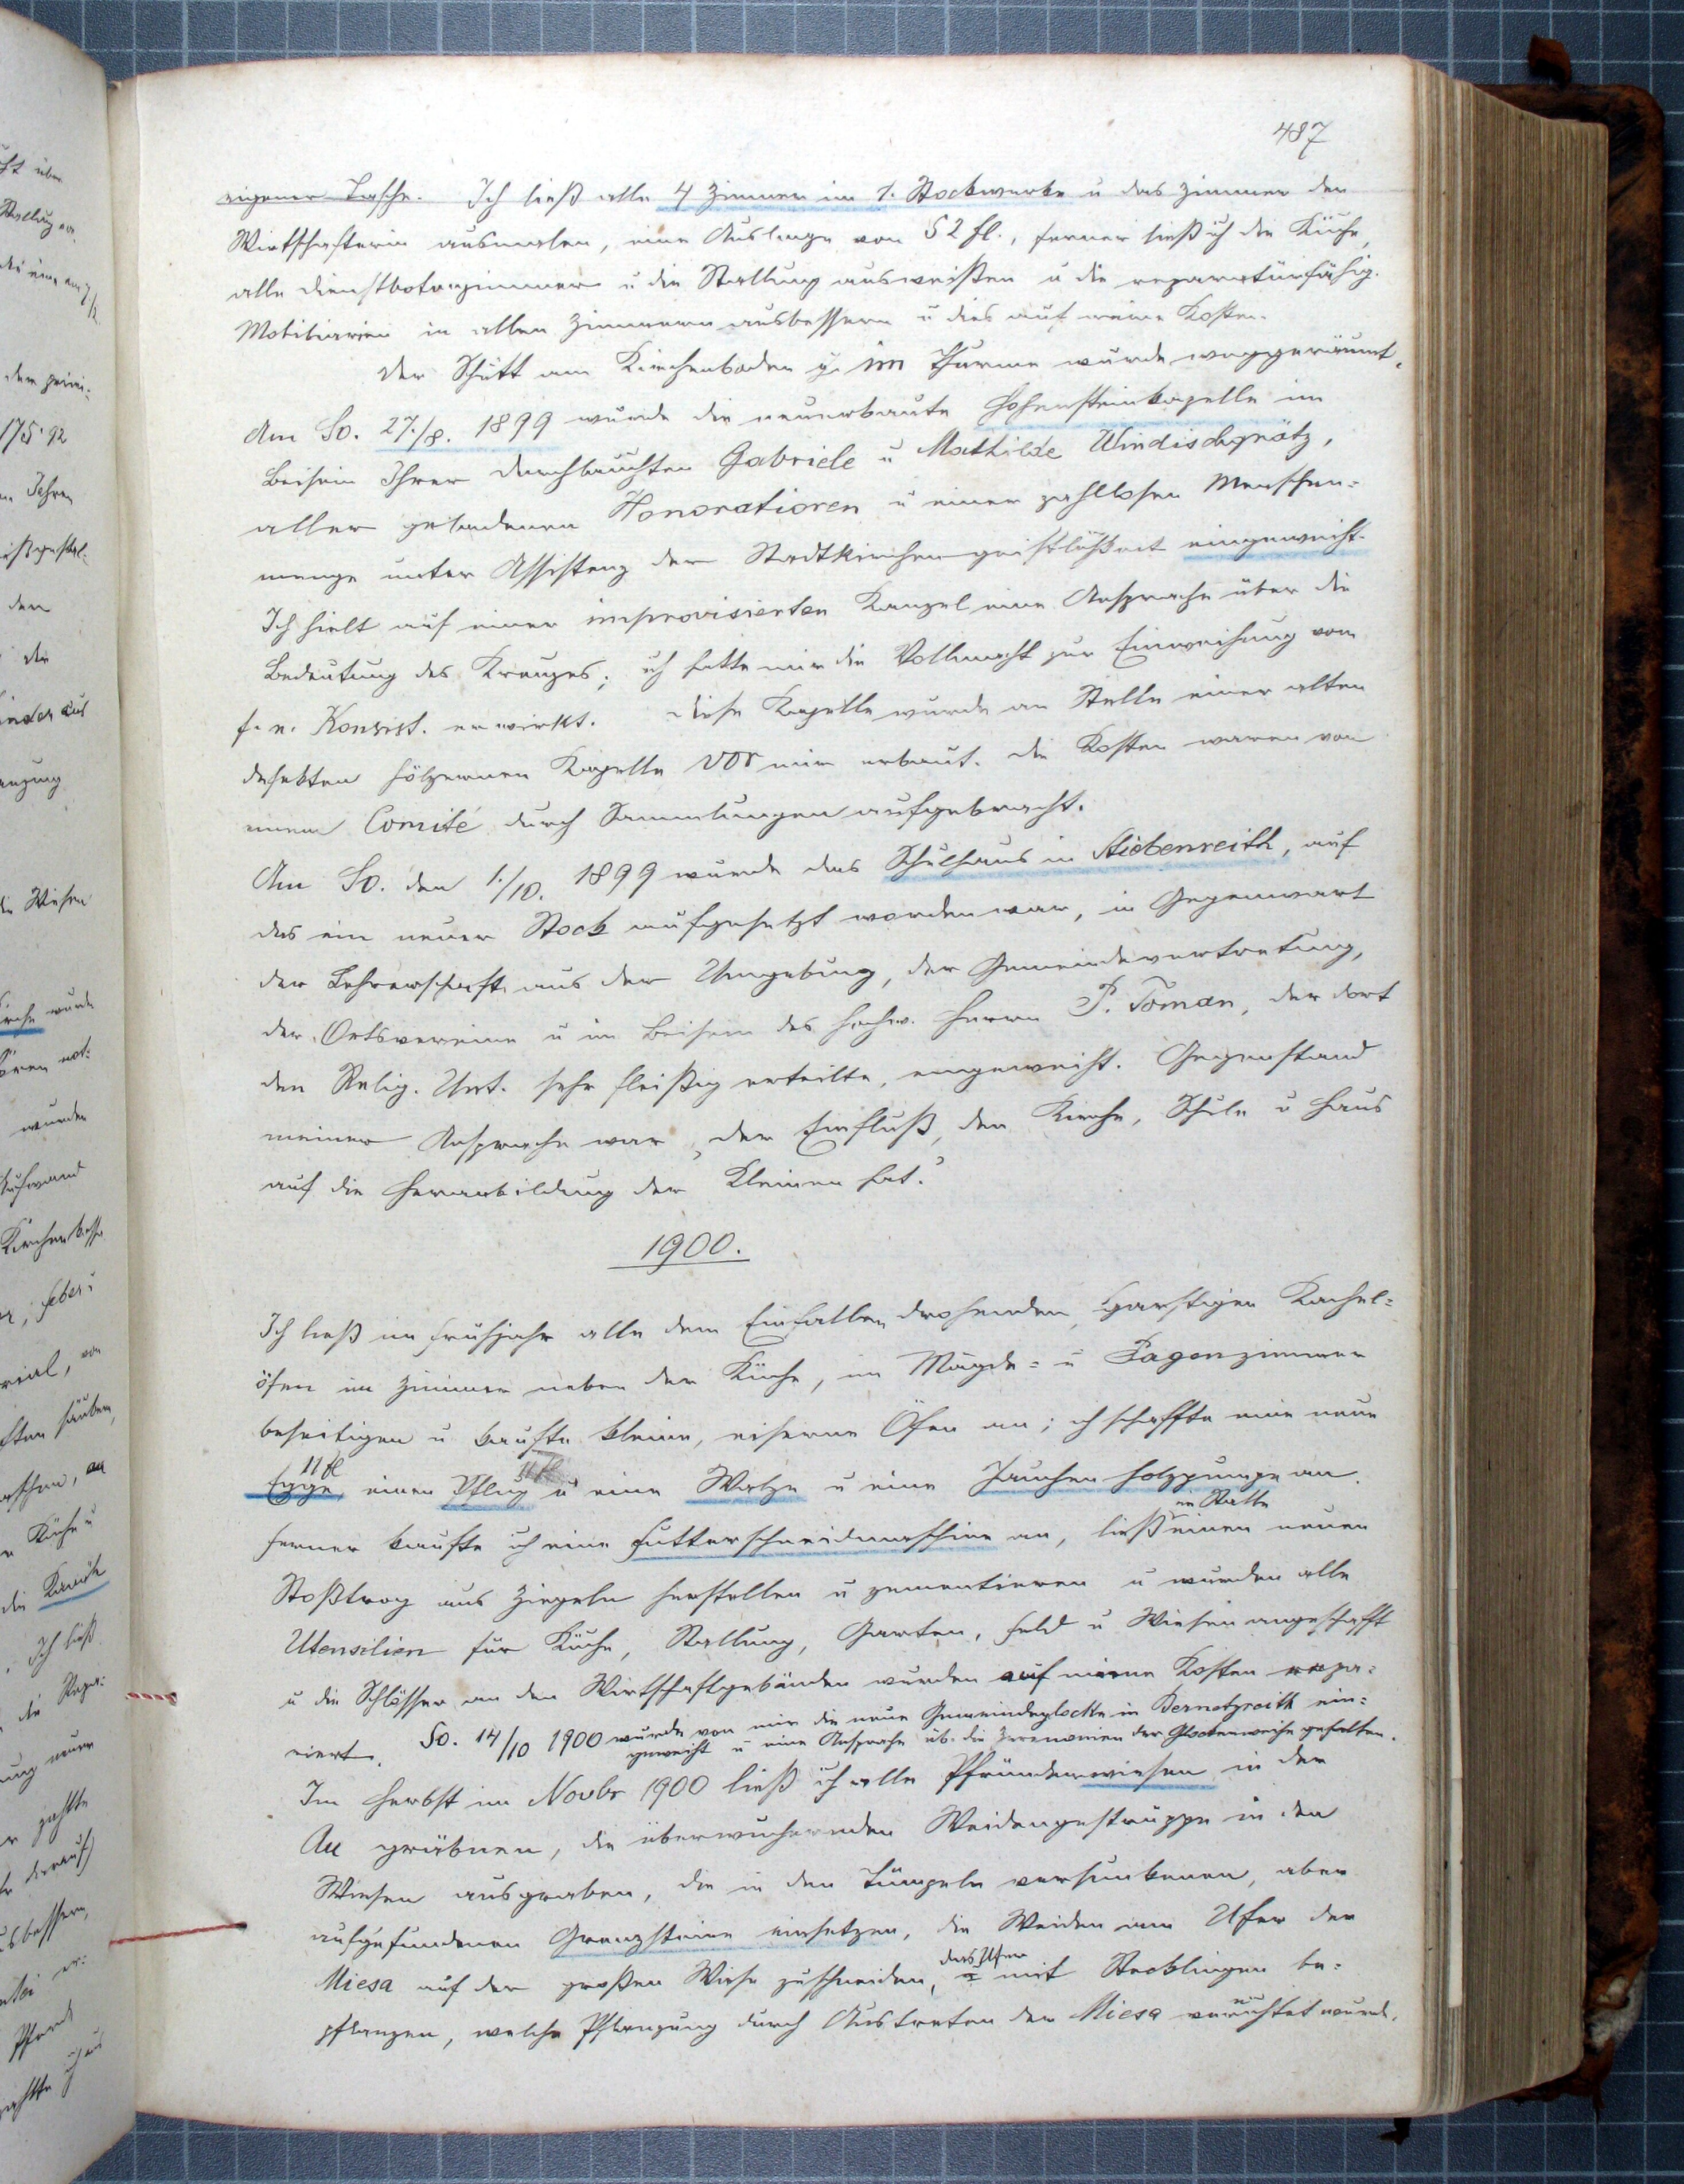 487
eigener Tasche. Ich ließ alle 4 Zimmer im 1. Stockwerke u das Zimmer der
Wirtschafterin ausmalen, eine Auslage von 52 fl., ferner ließ ich die Küche,
alle Dienstbotenzimmer u die Stallung ausweißen u die reparaturfähig.
Mobiliarien in allen Zimmern ausbessern u dies auf meine Kosten.
Der Schutt am Kirchenboden u. im Thurme wurde weggeräumt.
Am So. 27./8. 1899 wurde die neuerbaute Hohensteinkapelle im
Beisein Ihrer Durchlauchten Gabriele u Mathilde Windischgrätz,
aller geladenen Honoratioren u einer zahllosen Menschen=
menge unter Assistenz der Stadtkirchengeistlichkeit eingeweiht.
Ich hielt auf einer improvisierten Kanzel eine Ansprache über die
Bedeutung des Kreuzes; ich hatte mir die Vollmacht zur Einweihung vom
f. e. Konsist. erwirkt. Diese Kapelle wurde an Stelle einer alten
defekten hölzernen Kapelle vor mir erbaut. Die Kosten waren von
einem Comité durch Sammlungen aufgebracht.
Am So. den 1./10. 1899 wurde das Schulhaus in Stiebenreith, auf
das ein neuer Stock aufgesetzt worden war, in Gegenwart
der Lehrerschaft aus der Umgebung, der Gemeindevertretung,
der Ortsvereine u im Beisein des hochw. Herrn P. Toman, der dort
den Relig. Unt. sehr fleißig erteilte, eingeweiht. Gegenstand
meiner Ansprache war „der Einfluß, den Kirche, Schule u Haus
auf die Heranbildung der Kleinen hat.“
1900.
Ich ließ im Frühjahr alle dem Einfallen drohenden, garstigen Kachel=
öfen im Zimmer neben der Küche, im Mägde= u Pagenzimmer
beseitigen u kaufte kleine, eiserne Öfen an; ich schaffte eine neue
11 fl 11 fl
Egge, einen Pflug u eine Walze u eine Jauchen Holzpumpe an.
im Stalle
ferner kaufte ich eine Futterschneidmaschine an, ließ einen neuen
Stoßtrog aus Ziegeln herstellen u zementieren u wurden alle
Utensilien für Küche, Stallung, Garten, Feld u Wiesen angeschafft
u die Schlösser an den Wirtschaftgebäuden wurden auf meine Kosten repa=
riert. So. 14/10 1900 wurde von mir die neue Gemeindeglocke in Bernetzreith ein=
geweiht u eine Ansprache üb. die Zeremonien der Glockenweihe gehalten.
Im Herbst im Novbr 1900 ließ ich alle Pfründenwiesen in der
Au gräbnen, die überwuchernden Weidengestrüppe in den
Wiesen ausgraben, die in den Tümpeln versunkenen, aber
aufgefundenen Grenzsteine einsetzen, die Weiden am Ufer der
das Ufer
Miesa auf der großen Wiese zuschneiden, u mit Stecklingen be=
pflanzen, welche Pflanzung durch Austreten der Miesa vernichtet wurde.